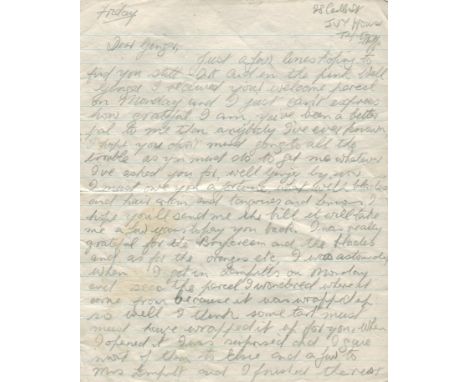 Friday
Dear Ginger,
Just a few lines hoping to
find you still and in the pink. Well
Ginger I received your welcome parcel
on Monday and I just can't express
how grateful I am, you've been a better
pal to me than anybody I've ever known
I hope you don't mind going to all the
trouble as you must do to get me whatever
I've asked you for, well ginger by now
I must owe you a fortune, what with blades
and hair cream and tangerines and lemons. I
hope you'll send me the bill it will take
me a few years to pay you back. I was really
grateful for the Brylcream and the blades
and as for the oranges etc. I was astonished
when I got in on Monday
and seen the parcel I wondered where it
come from because it was wrapped up
so well I think some tart must
must have wrapped it up for you. When
I opened it I was surprised and I gave
most of them to and a few to
Mrs and I finished the rest